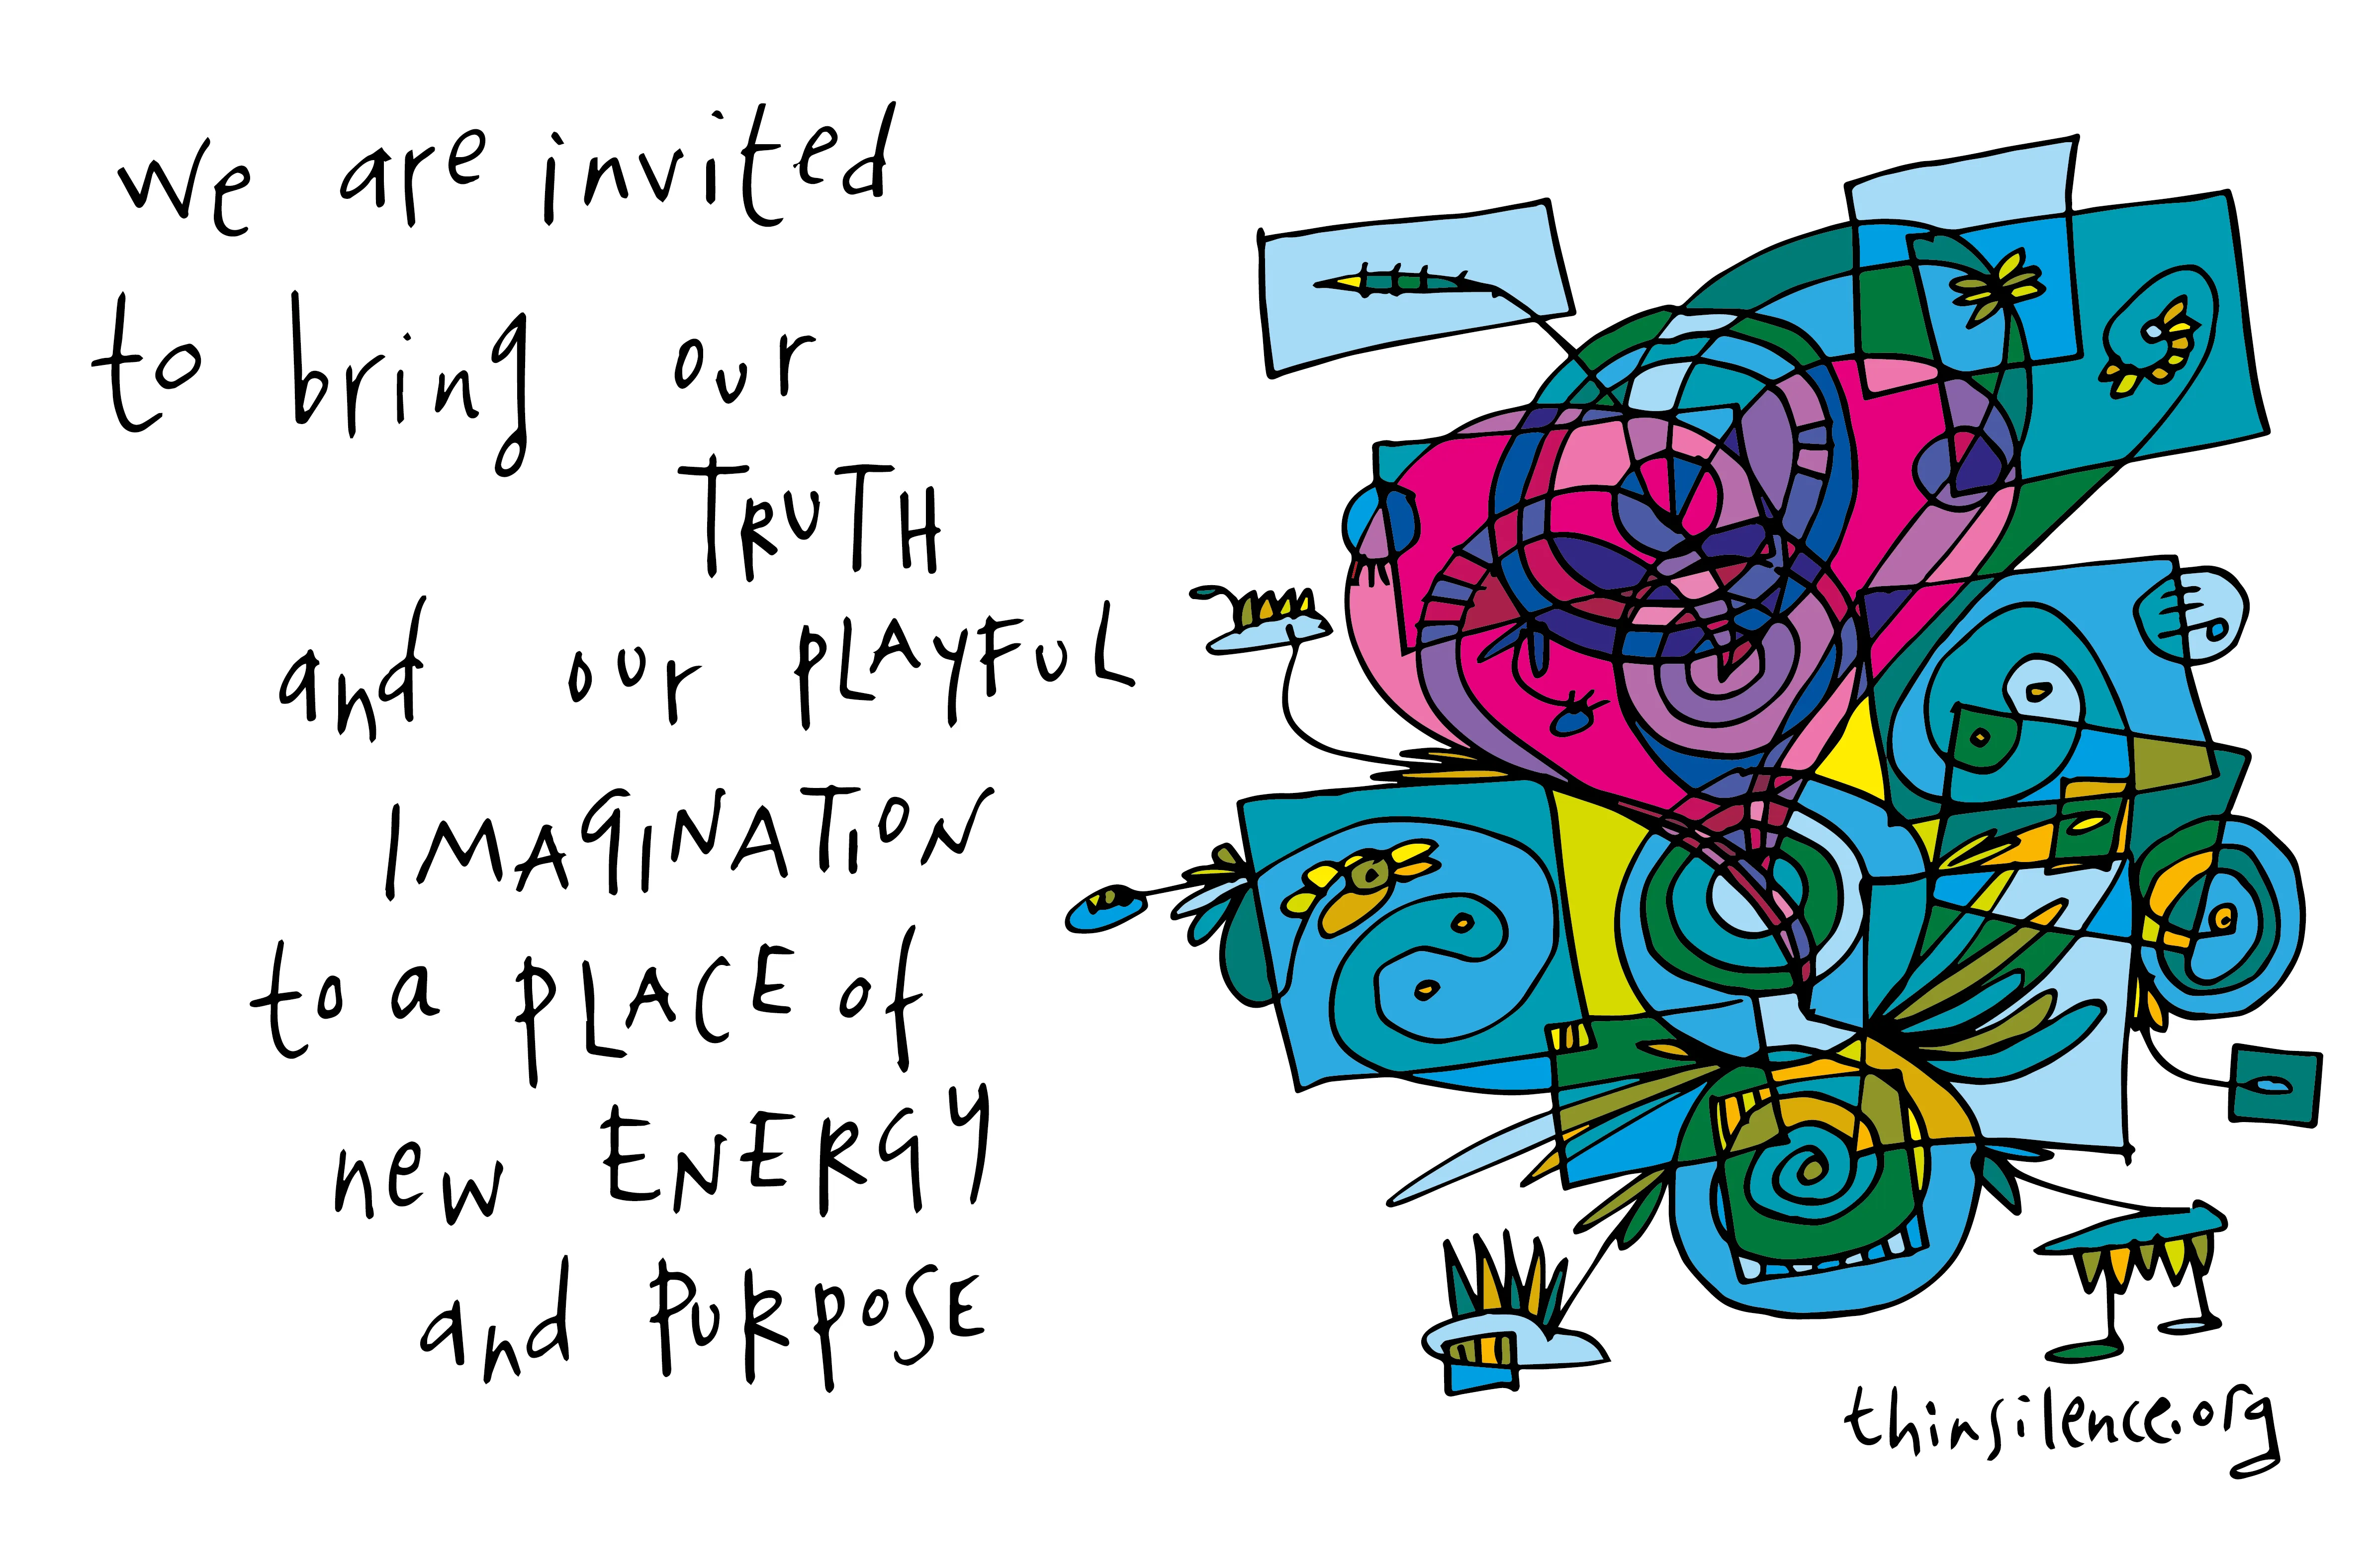 we are invited
to bring our
TRUTH
and our PLAYFUL
IMAGINATION
to a PLACE of
new ENERGY
and PURPOSE
thinsilence.org